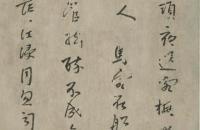 頭夜送客楓
人馬客在船
管絃醉不成
茫江浸月忽聞